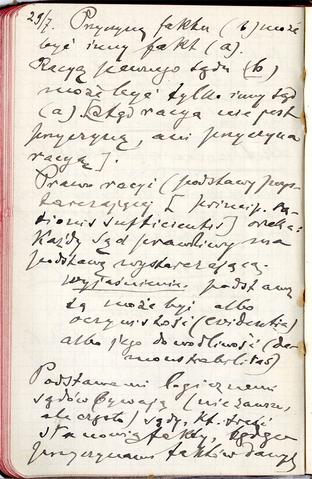 29/7. Przyczyną faktu (b) może
być inny fakt (a).
Racyą pewnego sądu (b)
może być tylko inny sąd
(a). [Stąd racya nie jest
przyczyną, ani przyczyna
racyą].
Prawo racyi (podstawy wys-
tarczającej [princip. ra-
tionis sufficientis] orzeka:
Każdy sąd prawdziwy ma
podstawę wystarczającą
wyjaśnienie: podstawą
tą może być albo
oczywistość (evidentia)
albo jego dowodliwość (de-
monstrabilitas)
Podstawami logicznemi
sądów bywają (nie zawsze,
ale często) sądy, kt. treść
stanowią fakty, będące
przyczynami faktów danych